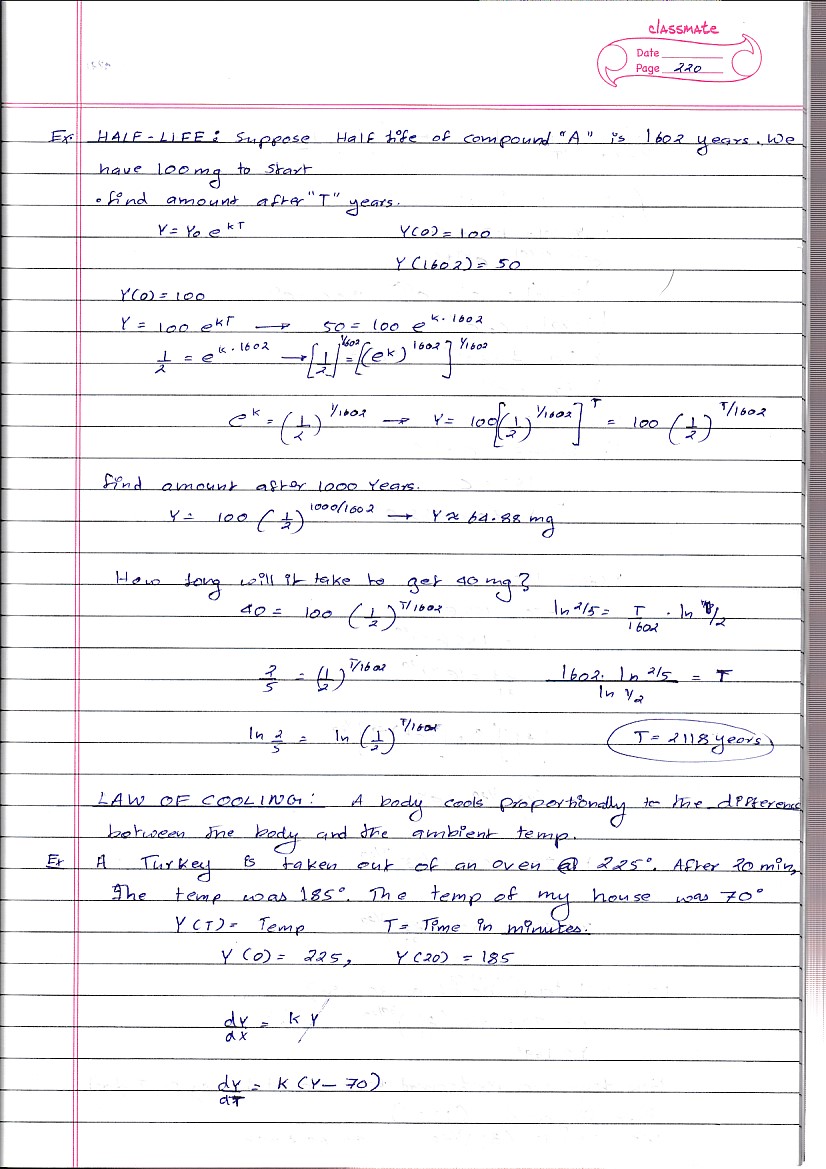 classmate
Date
Page 220
Ex: HALF-LIFE: Suppose Half life of compound "A" is 1602 years. We
have 100mg to start
• find amount after "T" years.
Y = Y₀ e^kT Y(0) = 100
Y(1602) = 50
Y(0) = 100
Y = 100 e^kT → 50 = 100 e^k·1602
1/2 = e^k·1602 → [1/2]^1/1602 = [(e^k)^1602]^1/1602
e^k = (1/2)^1/1602 → Y = 100[(1/2)^1/1602]^T = 100 (1/2)^T/1602
find amount after 1000 Years.
Y = 100 (1/2)^1000/1602 → Y ≈ 64.88 mg
How long will it take to get 40 mg?
40 = 100 (1/2)^T/1602 ln 2/5 = T/1602 · ln 1/2
2/5 = (1/2)^T/1602 1602· ln 2/5 / ln 1/2 = T
ln 2/5 = ln (1/2)^T/1602 T = 2118 years
LAW OF COOLING: A body cools proportionally to the difference
between the body and the ambient temp.
Ex A Turkey is taken out of an oven @ 225°. After 20 min,
The temp was 185°. The temp of my house was 70°
Y(T) = Temp T = Time in minutes.
Y(0) = 225, Y(20) = 185
dy/dx = KY
dy/dT = K(Y-70)